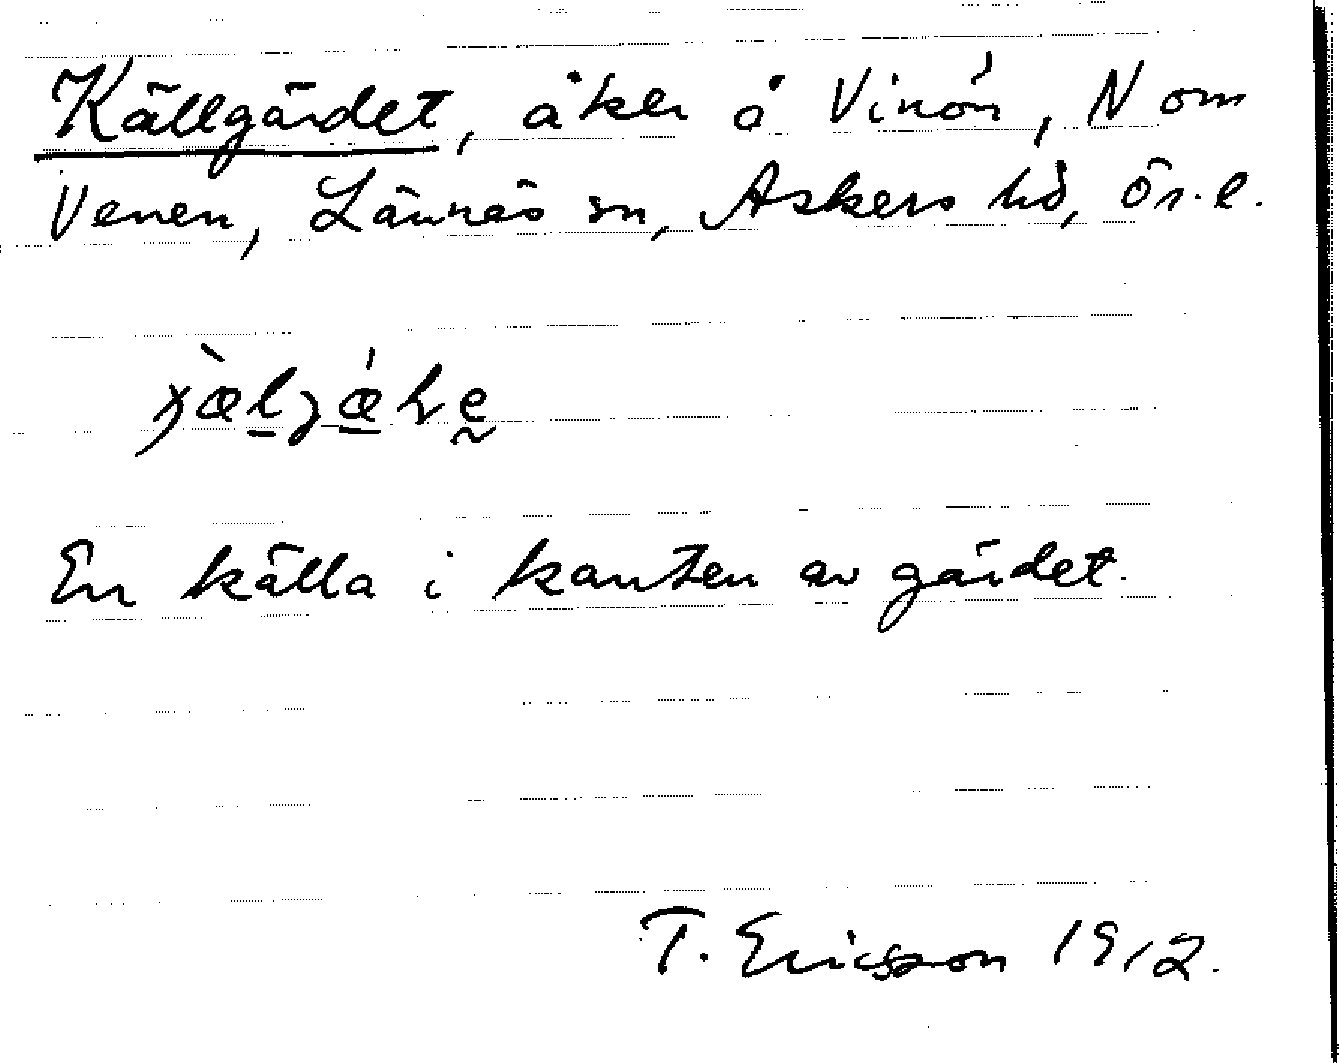 Källgärdet, åker å Vinön, N om
Venen, Lännäs sn, Askers hd, Ör.l.
En källa i kanten av gärdet.
T. Ericsson 1912.